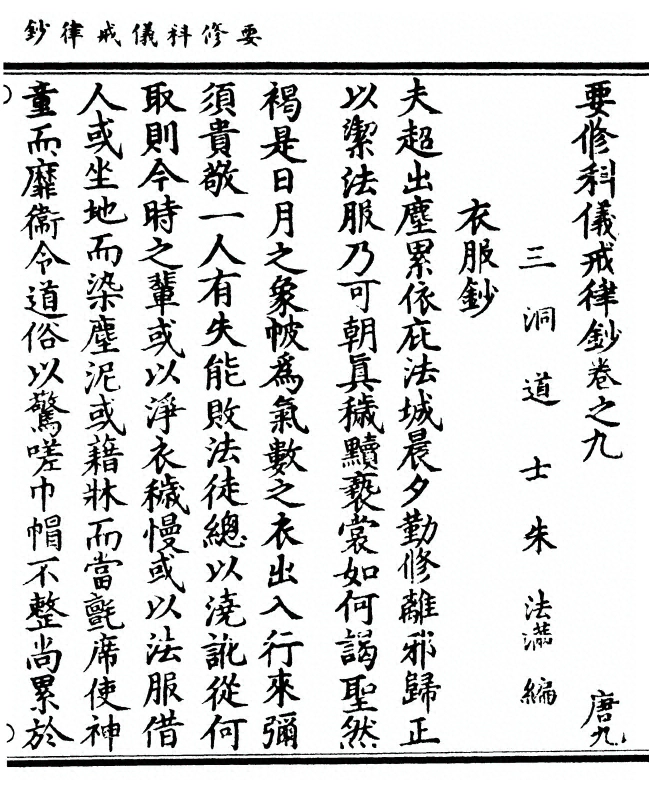 要修科儀戒律鈔
要修科儀戒律鈔卷之九
唐九
三洞道士朱法滿編
衣服鈔
夫超出塵累依庇法城晨夕勤修離邪歸正
以潔法服乃可朝眞穢黷褻裳如何謁聖然
褐是日月之象帔爲氣數之衣出入行來彌
須貴敬一人有失能敗法徒總以澆訛從何
取則今時之輩或以淨衣穢慢或以法服借
人或坐地而染塵泥或藉牀而當氈席使神
童而靡衞令道俗以驚嗟巾帽不整尚累於